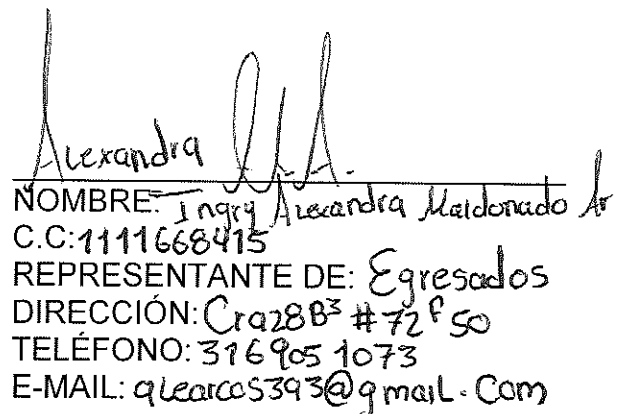 Alexandra
NOMBRE: Ingry Alexandra Maldonado Ar
C.C:1111668415
REPRESENTANTE DE: Egresados
DIRECCIÓN: Cra28B3 #72f50
TELÉFONO: 316 905 1073
E-MAIL: alearcos393@gmail.com